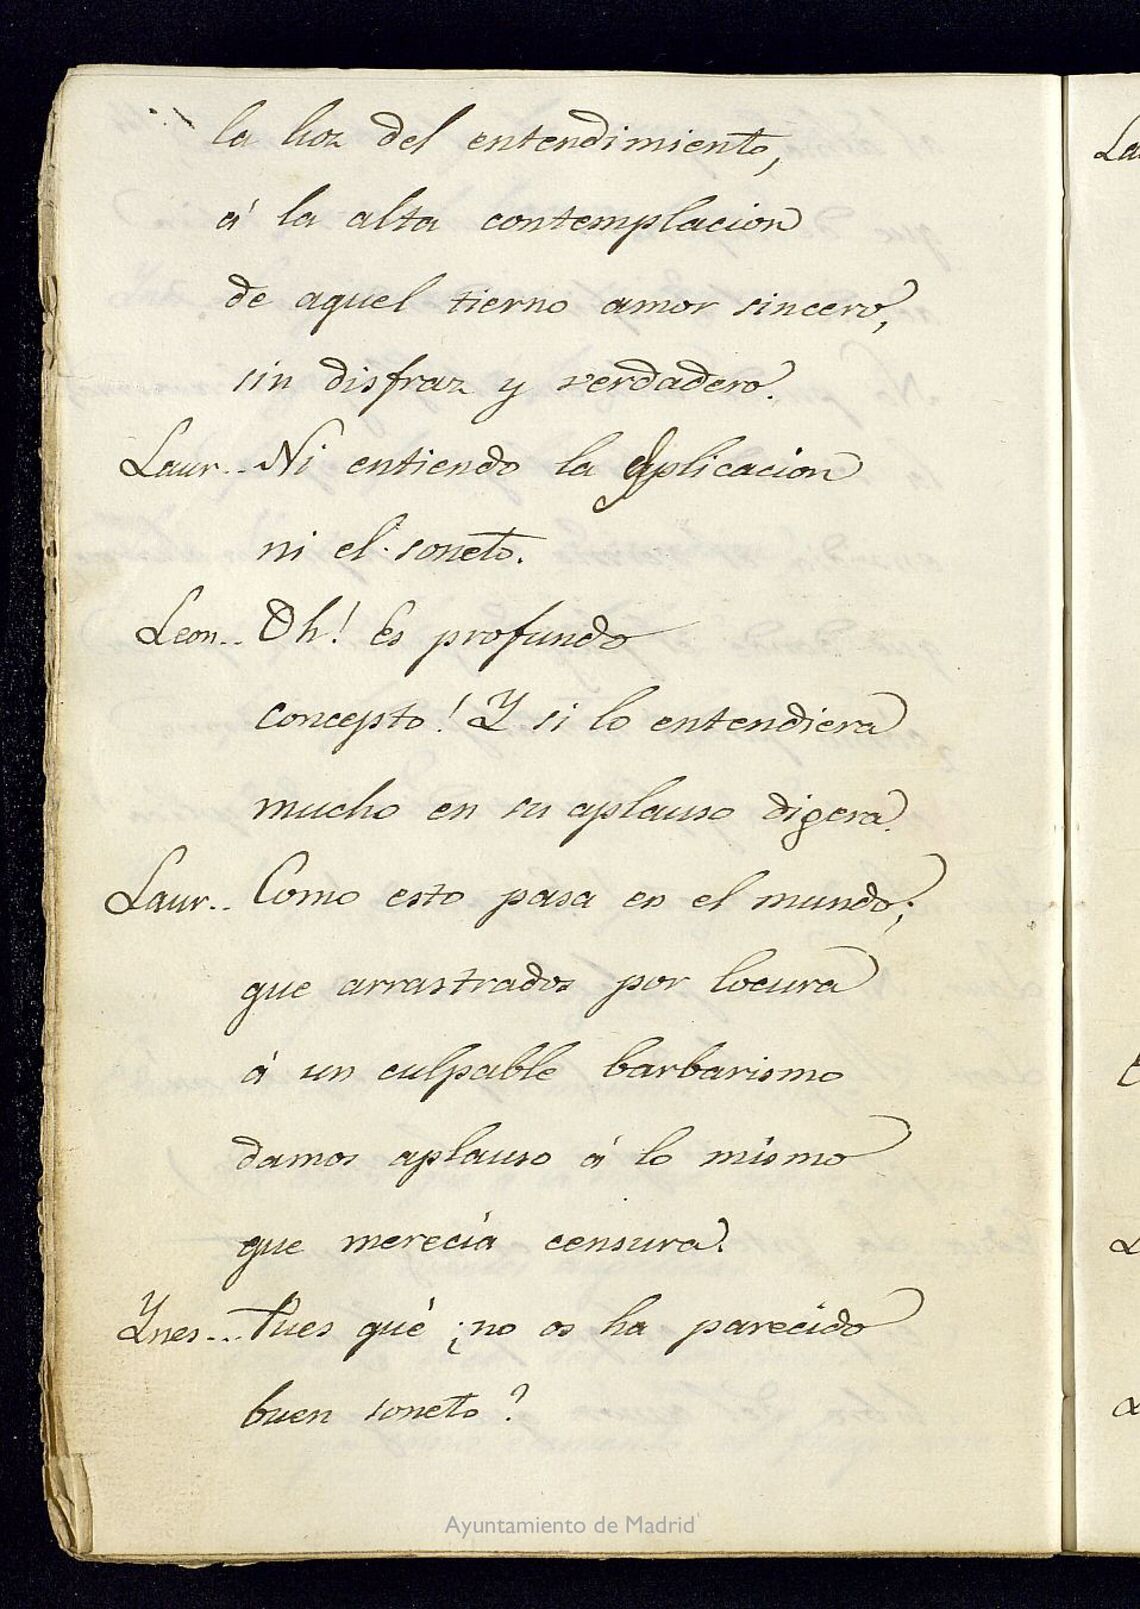 la luz del entendimiento,
á la alta contemplacion
de aquel tierno amor sincero,
sin disfraz y verdadero.
Laur.. Ni entiendo la aplicacion
ni el soneto.
Leon.. Oh! Es profundo
concepto! Y si lo entendiera
mucho en su aplauso digera.
Laur.. Como esto pasa en el mundo;
que arrastrados por locura
á un culpable barbarismo
damos aplauso á lo mismo
que merecia censura.
Ynes... Pues qué ¿no os ha parecido
buen soneto?
Ayuntamiento de Madrid